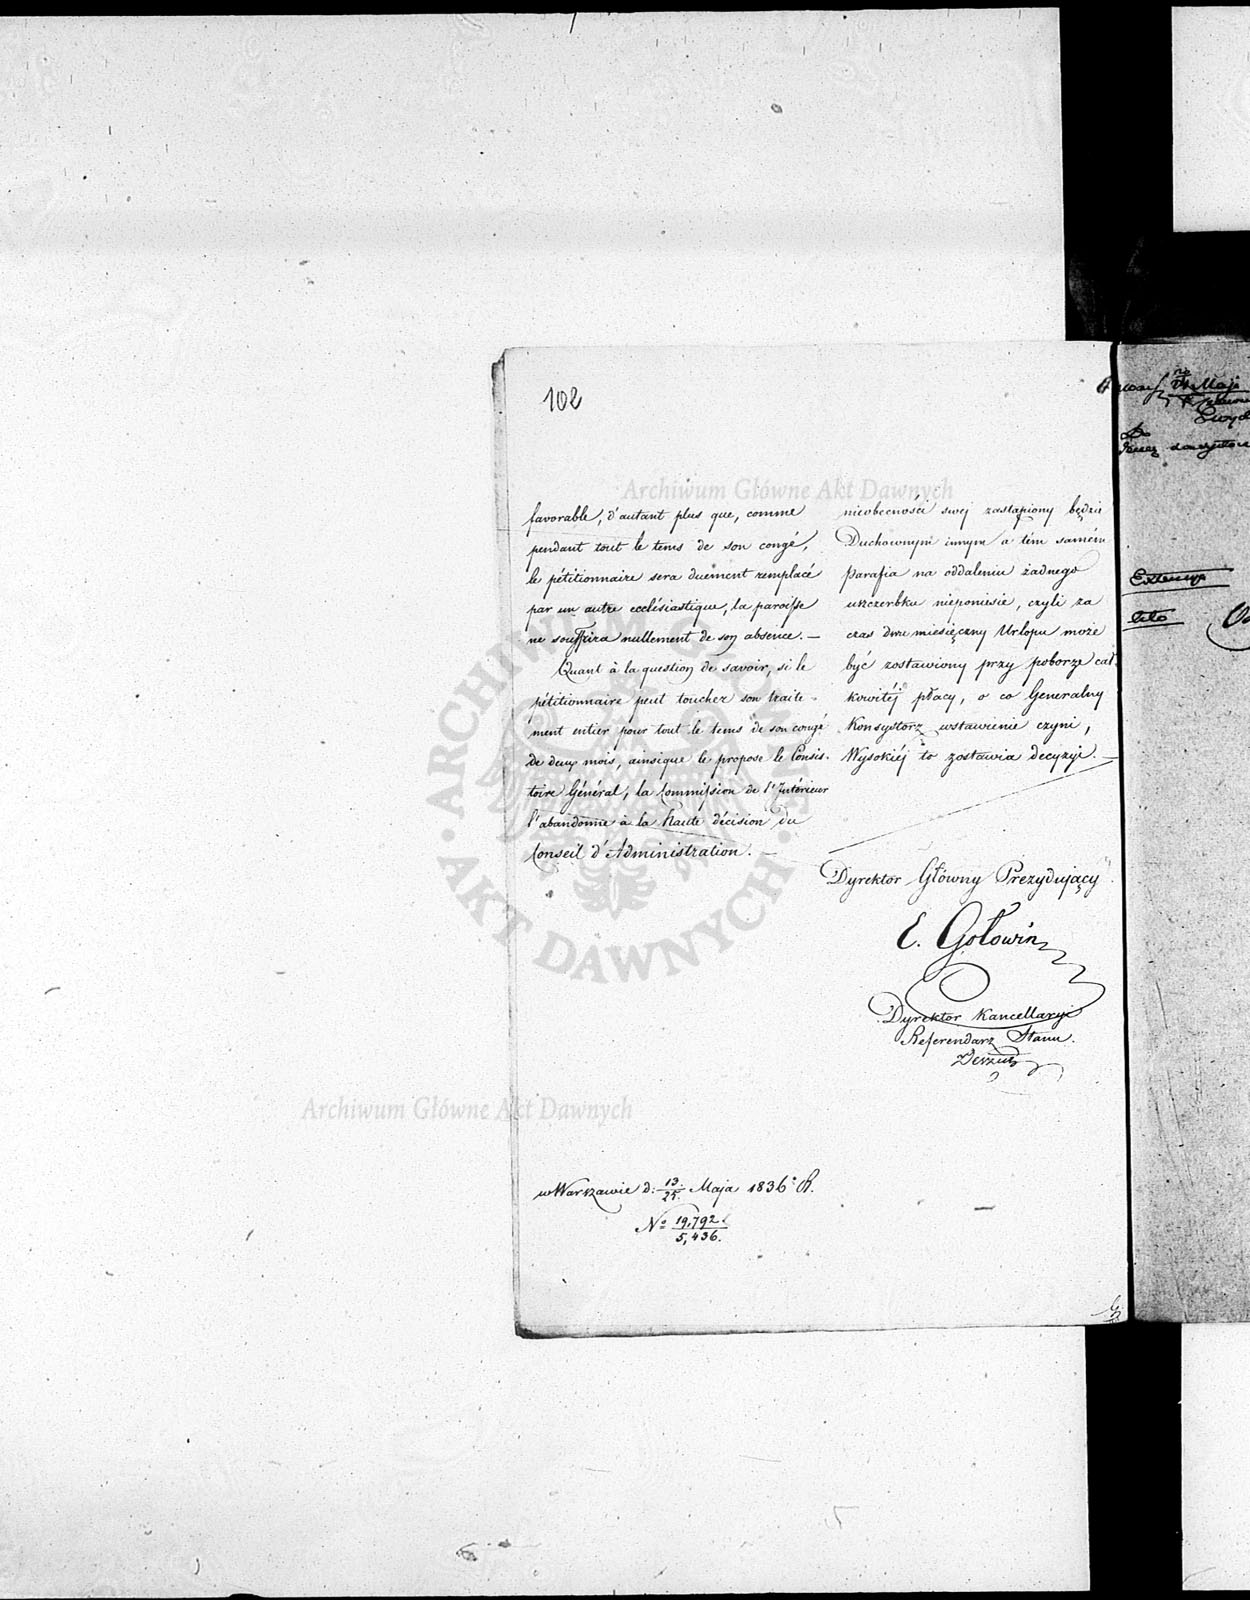 102
Archiwum Główne Akt Dawnych
favorable, d'autant plus que, comme
pendant tout le tems de son congé,
le pétitionnaire sera duement remplacé
par un autre ecclésiastique, la paroisse
ne souffrira nullement de son absence. —
Quant à la question de savoir, si le
pétitionnaire peut toucher son traite-
ment entier pour tout le tems de son congé
de deux mois, ainsique le propose le Consis-
toire Général, la Commission de l'Intérieur
l'abandonne à la Haute décision du
Conseil d'Administration. —
nieobecności swej zastąpiony będzie
Duchownym innym a tém samém
Parafia na oddaleniu żadnego
uszczerbku nieponiesie, czyli za
czas dwu miesięczny Urlopu może
być zostawiony przy poborze cał-
kowitéj płacy, o co Generalny
Konsystorz wstawienie czyni,
Wysokiéj to zostawia decyzyi. —
Dyrektor Główny Prezydujący
E. Gołowin
Dyrektor Kancellaryi
Referendarz Stanu.
w Warszawie d: 13/25. Maja 1836 R.
No 19,792/5,436.
Archiwum Główne Akt Dawnych
ARCHIWUM GŁÓWNE · AKT DAWNYCH ·
Maja